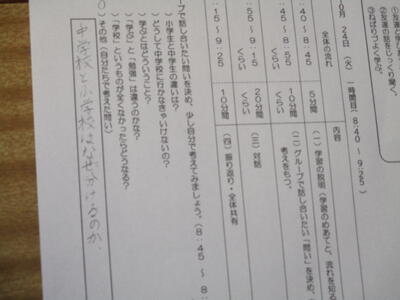 ①友達と学
②友達の話をじっくり聞く。
③ねばりづよく学ぶ。
10月24日(火) 1時間目(8:40~9:25)
全体の流れ
内容
:40~8:45
5分間
(一)学習の説明(学習のめあてと、流れを知る
:45~8:55
くらい
10分間
(二)グループで話し合いたい「問い」を決め、
考えをもつ。
:55~9:15
くらい
20分間
(三)対話
:15~9:25
くらい
10分間
(四)振り返り・全体共有
プで話し合いたい問いを決め、少し自分で考えてみましょう。(8:45~8
小学生と中学生の違いは?
どうして中学校に行かなきゃいけないの?
学ぶとはどういうこと?
「学ぶ」と「勉強」は違うのかな?
「学校」というものが全くなかったらどうなる?
その他(自分たちで考えた問い)
中学校と小学校はなぜ分けるのか、